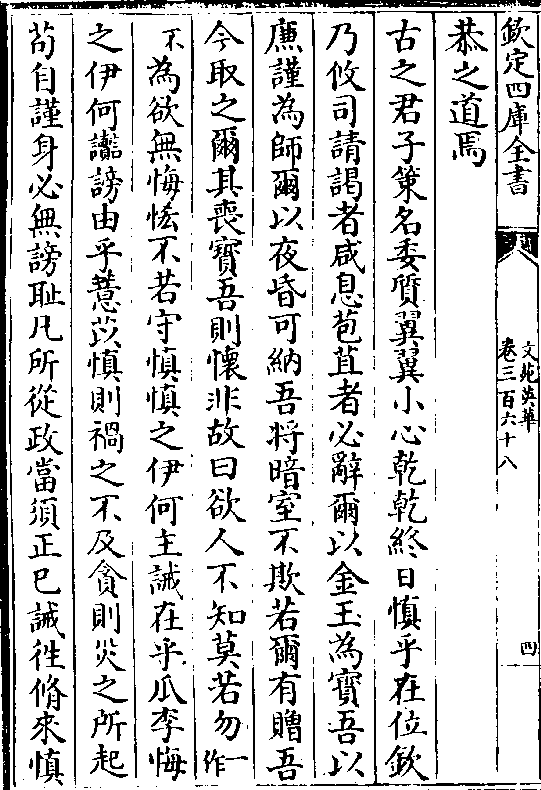 欽定四庫全書
文苑英華
卷三百六十八
四
恭之道焉
古之君子策名委質翼翼小心乾乾終日慎乎在位欽
乃攸司請謁者咸息苞苴者必辭爾以金玉為寶吾以
廉謹為師爾以夜昏可納吾將暗室不欺若爾有贈吾
今取之爾其喪寶吾則懷非故曰欲人不知莫若勿一作
不為欲無悔恡不若守慎慎之伊何主誡在乎瓜李悔
之伊何讒謗由乎薏苡慎則禍之不及貪則災之所起
苟自謹身必無謗恥凡所從政當須正已誡徃脩來慎